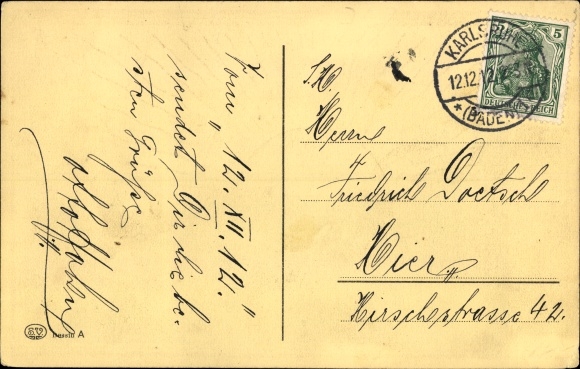 Vom „12. XII. 12.“
sendet Dir liebe-
sten Grüße
S. H.
Herrn
Friedrich Doetsch
Hier
Hirschstrasse 42.
KARLSRUHE
12.12.12
* (BADEN)
5
DEUTSCHES REICH
Dessin A